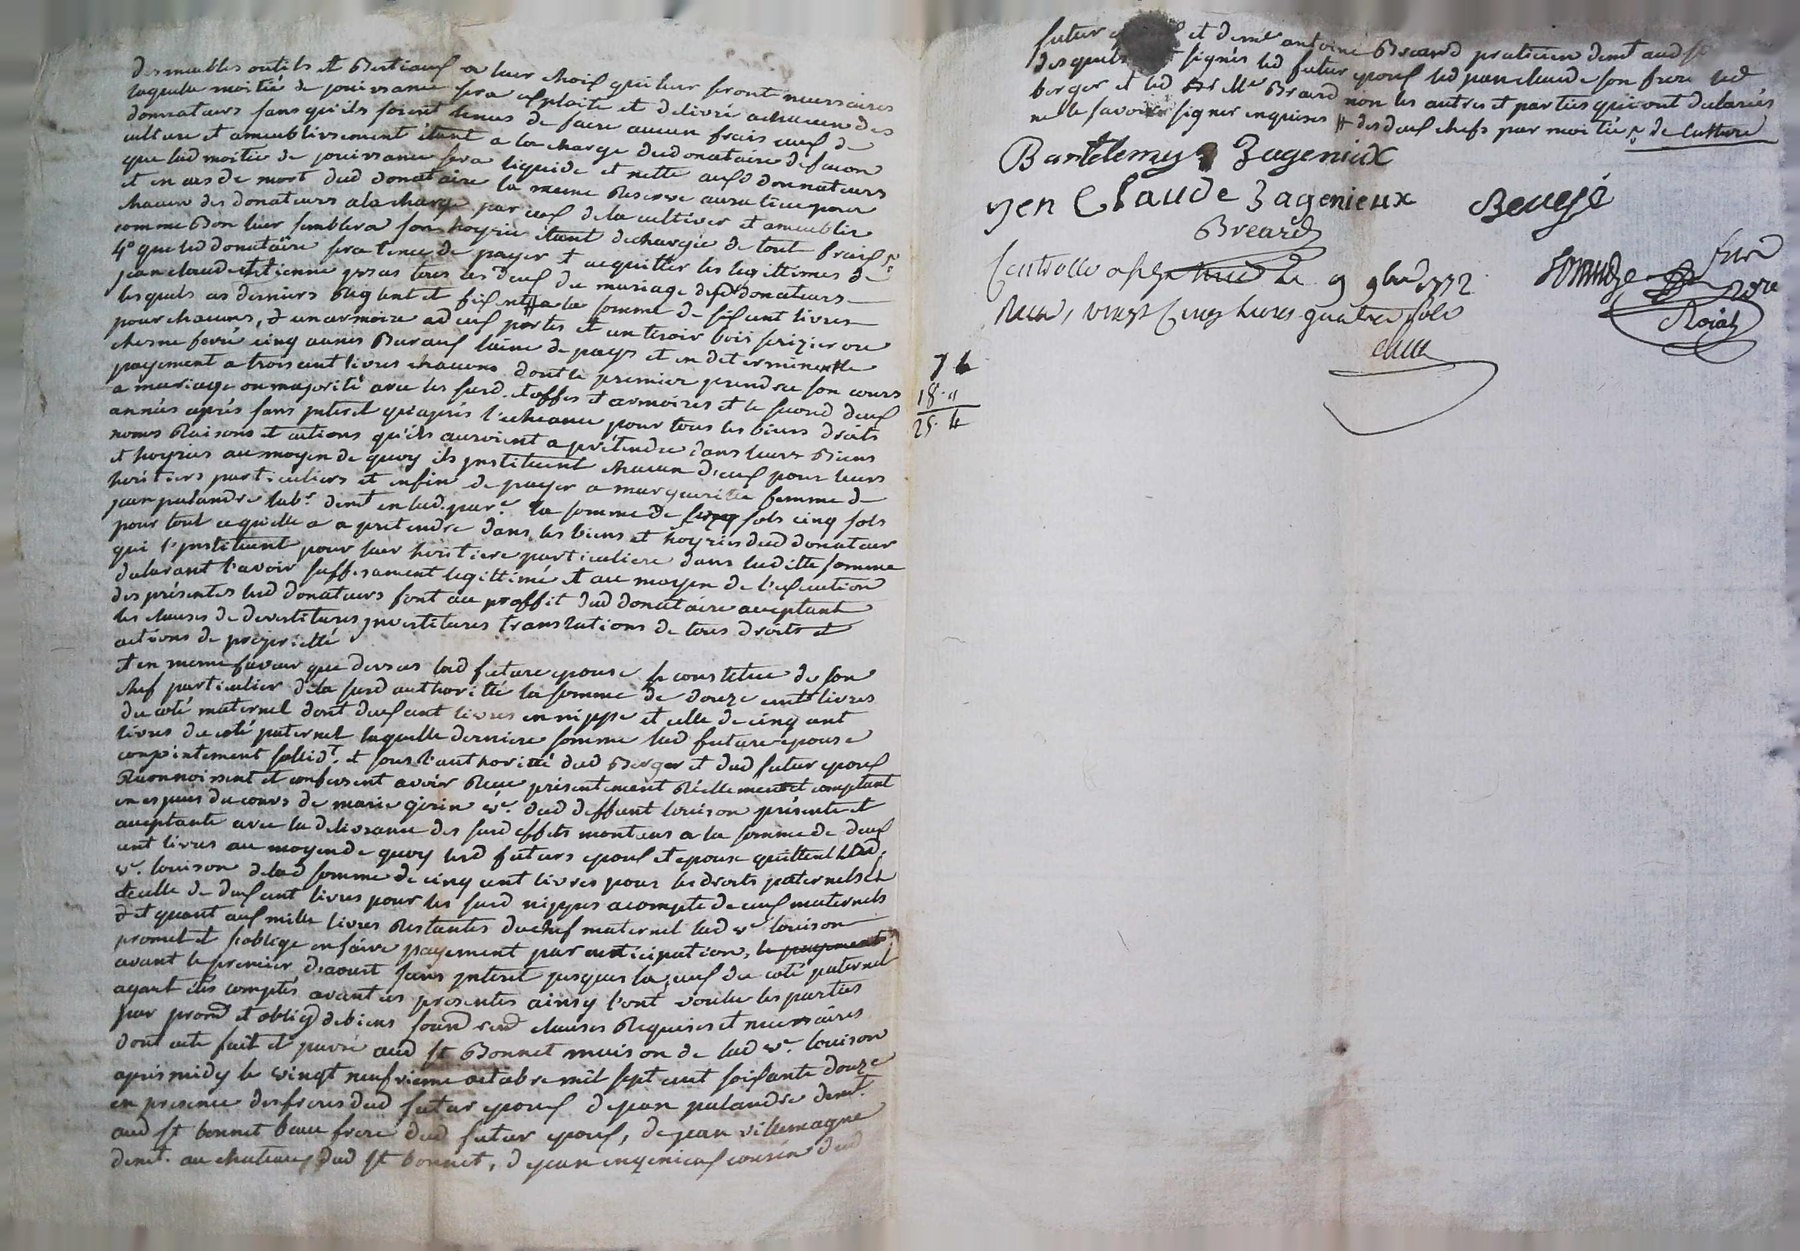 des meubles outils et Bestiaux a leur choix qui leur seront necessaires
laquelle moitié de jouissance sera exploité et delivré a chacun des
donnateurs sans qu'ils soient tenus de faire aucun frais eux de
culture et ameublissement étant a la charge dud donataire de facon
que lad moitié de jouissance sera liquide et nette auxd donnateurs
et en cas de mort dud donataire la meme Reserve aura lieu pour
chacun des donateurs a la charge par eux de la cultiver et ameublir
comme Bon leur semblera son hoyrie étant dechargée de tout frais
4° que led donataire sera tenu de payer et acquitter les legittimes de
jean claude et etienne tous les deux du mariage desd donateurs
lesquels ces derniers Reglent et fixent a la somme de six cent livres
pour chacuns, & un armoire a deux portes et un tiroir bois serizier ou
chesne ferré cinq aunes Buraux laine de pays et en determinent le
payement a trois cent livres chacuns dont le premier prendra son cours
a mariage ou majorité avec les susd étoffes et armoires et le second deux
années aprés sans interet qu'aprés l'echeance pour tous les biens droits
noms Raisons et actions qu'ils auroient a prétendre dans leurs Biens
et hoyries au moyen de quoy ils jnstituent chacun d'eux pour leurs
heritiers particuliers et enfin de payer a marguerite femme de
jean palandre lab.r demt en lad. par.e la somme de sols cinq sols
pour tout ce qu'elle a a pretendre dans les biens et hoyries dud donateur
qui l'jnstituent pour leur heritiere particuliere dans laditte somme
declarant l'avoir suffisament legittimé et au moyen de l'execution
des présentes led donateurs font au proffit dud donataire acceptant
les clauses de devestitures jnvestitures translations de tous droits et
actions de proprietté
et en meme faveur que dessus lad future epouse se constitue de son
chef particulier de la susd authorité la somme de douze cent livres
du coté maternel dont deux cent livres en nippe et celle de cinq cent
livres du coté paternel laquelle derniere somme lad future epouse
conjointement sollid.t et sous l'authorité dud Berger et dud futur epoux
Reconnoissent et confessent avoir Recu présentement Réellement et comptant
en espece du cours de marie gerin v.e dud deffunt louison présente et
acceptante avec la delivrance des susd effets montant a la somme de deux
cent livres au moyen de quoy lesd futurs epoux et epouse quittent lad.
v.e louison de lad somme de cinq cent livres pour les droits paternels et
de celle de deux cent livres pour les susd nippes a compte de ceux maternels
& et quant aux mille livres Restantes du chef maternel lad v.e louison
promet et s'oblige en faire payement par anticipation, le payement
avant le premier d'aoust sans jnteret jusques la, ceux du coté paternel
ayant été comptés avant ces presentes ainsy l'ont voulu les parties
par prom et oblig de biens soum renon clauses Requises et necessaires
dont acte fait et passé aud st Bonnet maison de lad v.e louison
aprés midy le vingt neufvieme octobre mil sept cent soixante douze
en presence des freres dud futur epoux de jean palandre demt.
aud st bonnet beau frere dud futur epoux, de jean villemagne
demt. au chateau dud st bonnet, de jean cousin dud
futur et de me antoine Breard praticien demt aud st
desquels signés led futur epoux led jean claude son frere led
berger et led Me Breard non les autres et parties qui ont declarés
ne le savoir signer enquises # des deux chefs par moitié de culture
Bartelemy Zagenieux
jen Claude Zagenieux
Berjé
Breard
Controllé a le 9 9bre 1772
Recu, vingt cinq livres quatre sols
Roial
7 4
18 "
25 4